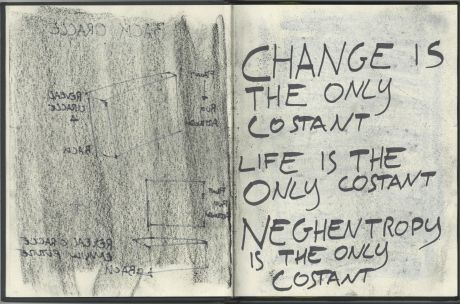 BACK ORACLE
REVEAL
ORACLE
BACK
REVEAL ORACLE
FUTURE
BACK
CHANGE IS
THE ONLY
COSTANT
LIFE IS THE
ONLY COSTANT
NEGHENTROPY
IS THE ONLY
COSTANT